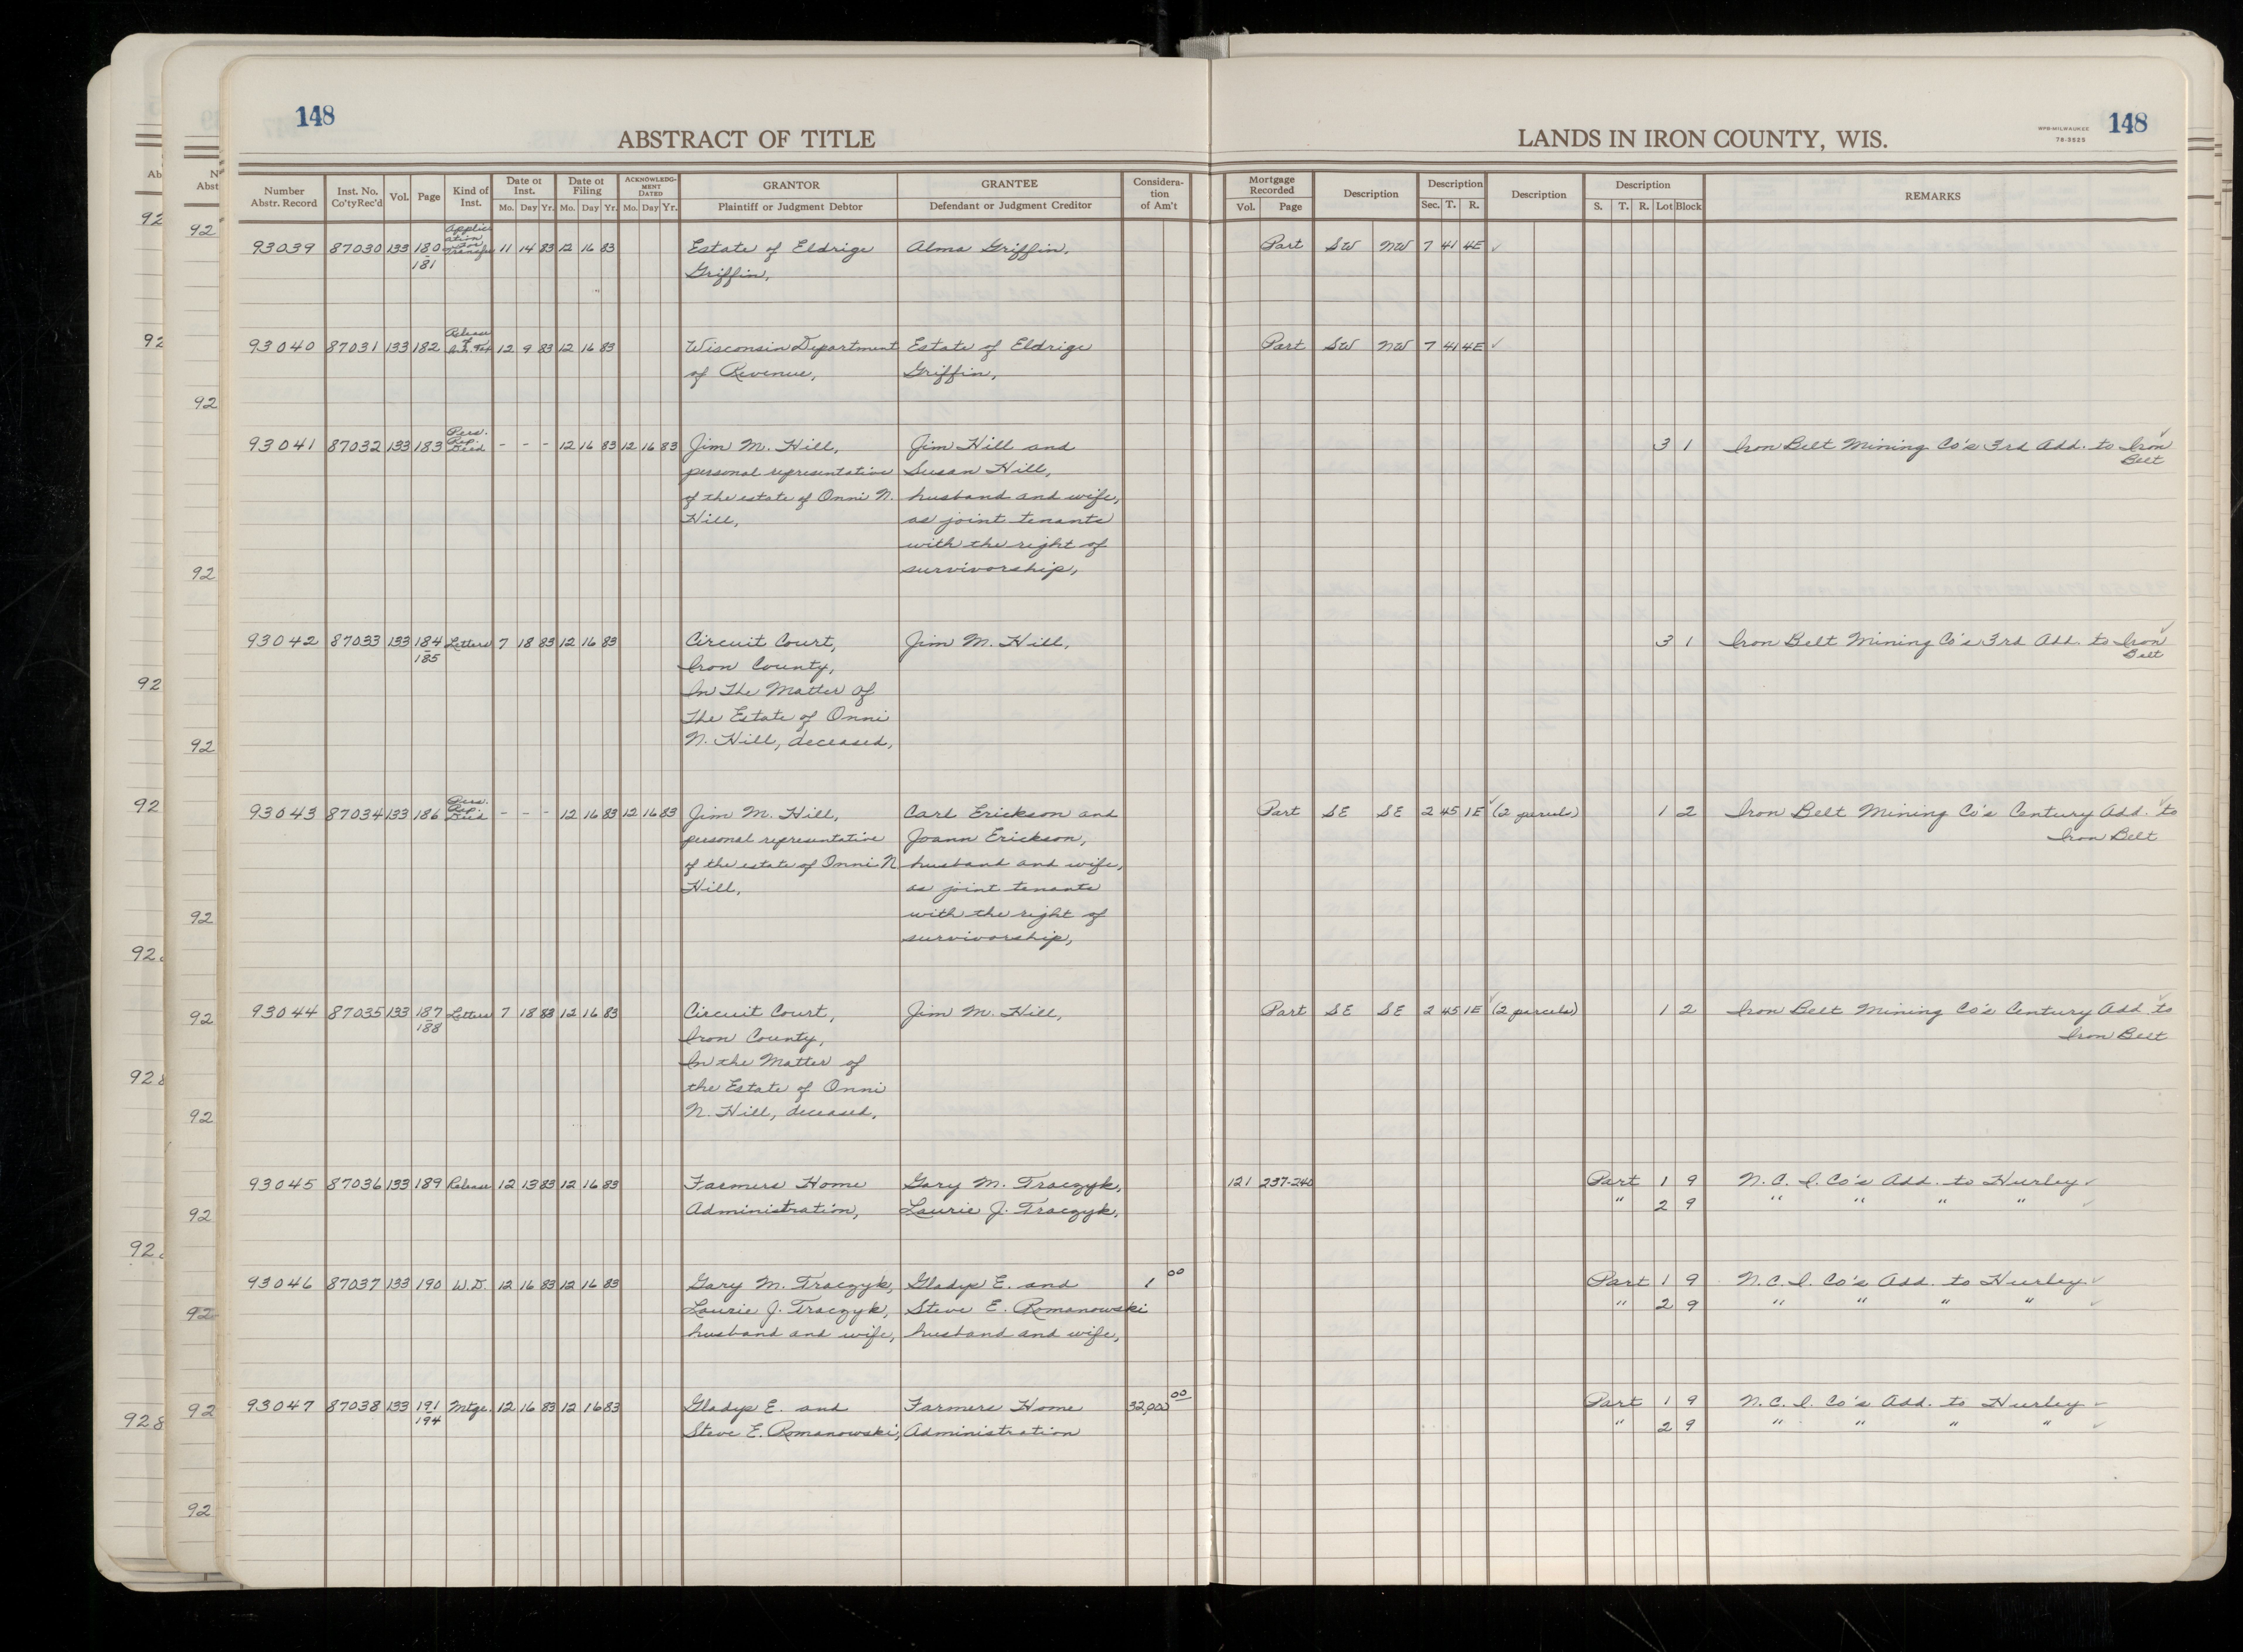 148
ABSTRACT OF TITLE
LANDS IN IRON COUNTY, WIS.
WPB-MILWAUKEE
78-3525
148
Number Abstr. Record | Inst. No. Co'tyRec'd | Vol. | Page | Kind of Inst. | Date of Inst. Mo. Day Yr. | Date of Filing Mo. Day Yr. | ACKNOWLEDGMENT DATED Mo. Day Yr. | GRANTOR Plaintiff or Judgment Debtor | GRANTEE Defendant or Judgment Creditor | Consideration of Am't | Mortgage Recorded Vol. Page | Description | Description Sec. T. R. | Description | Description S. T. R. Lot Block | REMARKS
93039 87030 133 180 Application for Transfer 11 14 83 12 16 83 Estate of Eldrige Alma Griffin, Part SW NW 7 41 4E ✓
181 Griffin,
93040 87031 133 182 Release of Inh. Tax 12 9 83 12 16 83 Wisconsin Department Estate of Eldrige Part SW NW 7 41 4E ✓
of Revenue, Griffin,
93041 87032 133 183 Pers. Rep. Deed - - - 12 16 83 12 16 83 Jim M. Hill, Jim Hill and 3 1 Iron Belt Mining Co's 3rd Add. to Iron ✓
personal representative Susan Hill, Belt
of the estate of Onni N. husband and wife,
Hill, as joint tenants
with the right of
survivorship,
93042 87033 133 184 Letters 7 18 83 12 16 83 Circuit Court, Jim M. Hill, 3 1 Iron Belt Mining Co's 3rd Add. to Iron ✓
185 Iron County, Belt
In The Matter of
The Estate of Onni
N. Hill, deceased,
93043 87034 133 186 Pers. Rep. Deed - - - 12 16 83 12 16 83 Jim M. Hill, Carl Erickson and Part SE SE 2 45 1E ✓ (2 parcels) 1 2 Iron Belt Mining Co's Century Add. to ✓
personal representative Joann Erickson, Iron Belt
of the estate of Onni N husband and wife,
Hill, as joint tenants
with the right of
survivorship,
93044 87035 133 187 Letters 7 18 83 12 16 83 Circuit Court, Jim M. Hill, Part SE SE 2 45 1E ✓ (2 parcels) 1 2 Iron Belt Mining Co's Century Add to ✓
188 Iron County, Iron Belt
In the Matter of
the Estate of Onni
N. Hill, deceased,
93045 87036 133 189 Release 12 13 83 12 16 83 Farmers Home Gary M. Traczyk, 121 237-240 Part 1 9 N.C.I. Co's Add. to Hurley ✓
Administration, Laurie J. Traczyk, " 2 9 " " " " ✓
93046 87037 133 190 W.D. 12 16 83 12 16 83 Gary M. Traczyk, Gladys E. and 1 00 Part 1 9 N.C.I. Co's Add. to Hurley ✓
Laurie J. Traczyk, Steve E. Romanowski " 2 9 " " " " ✓
husband and wife, husband and wife,
93047 87038 133 191 Mtge. 12 16 83 12 16 83 Gladys E. and Farmers Home 32,000 00 Part 1 9 N.C.I. Co's Add. to Hurley ✓
194 Steve E. Romanowski, Administration " 2 9 " " " " ✓